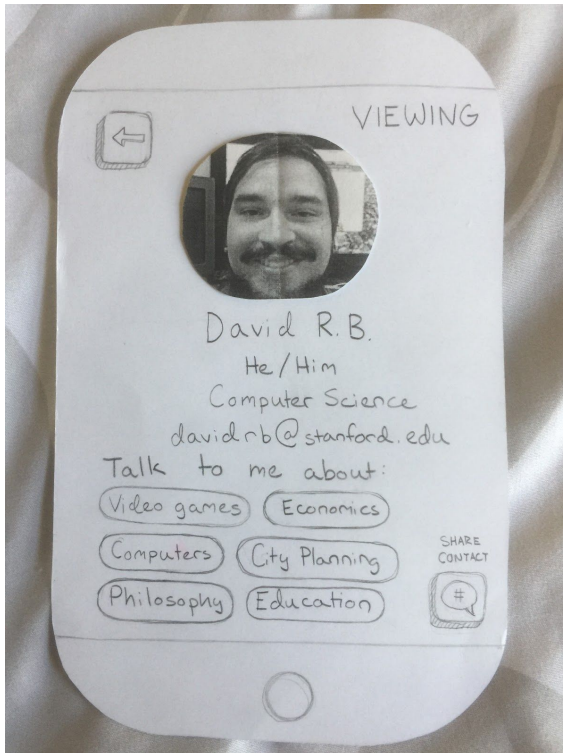 VIEWING
David R.B.
He/Him
Computer Science
davidrb@stanford.edu
Talk to me about:
Video games Economics
Computers City Planning
Philosophy Education
SHARE
CONTACT
#